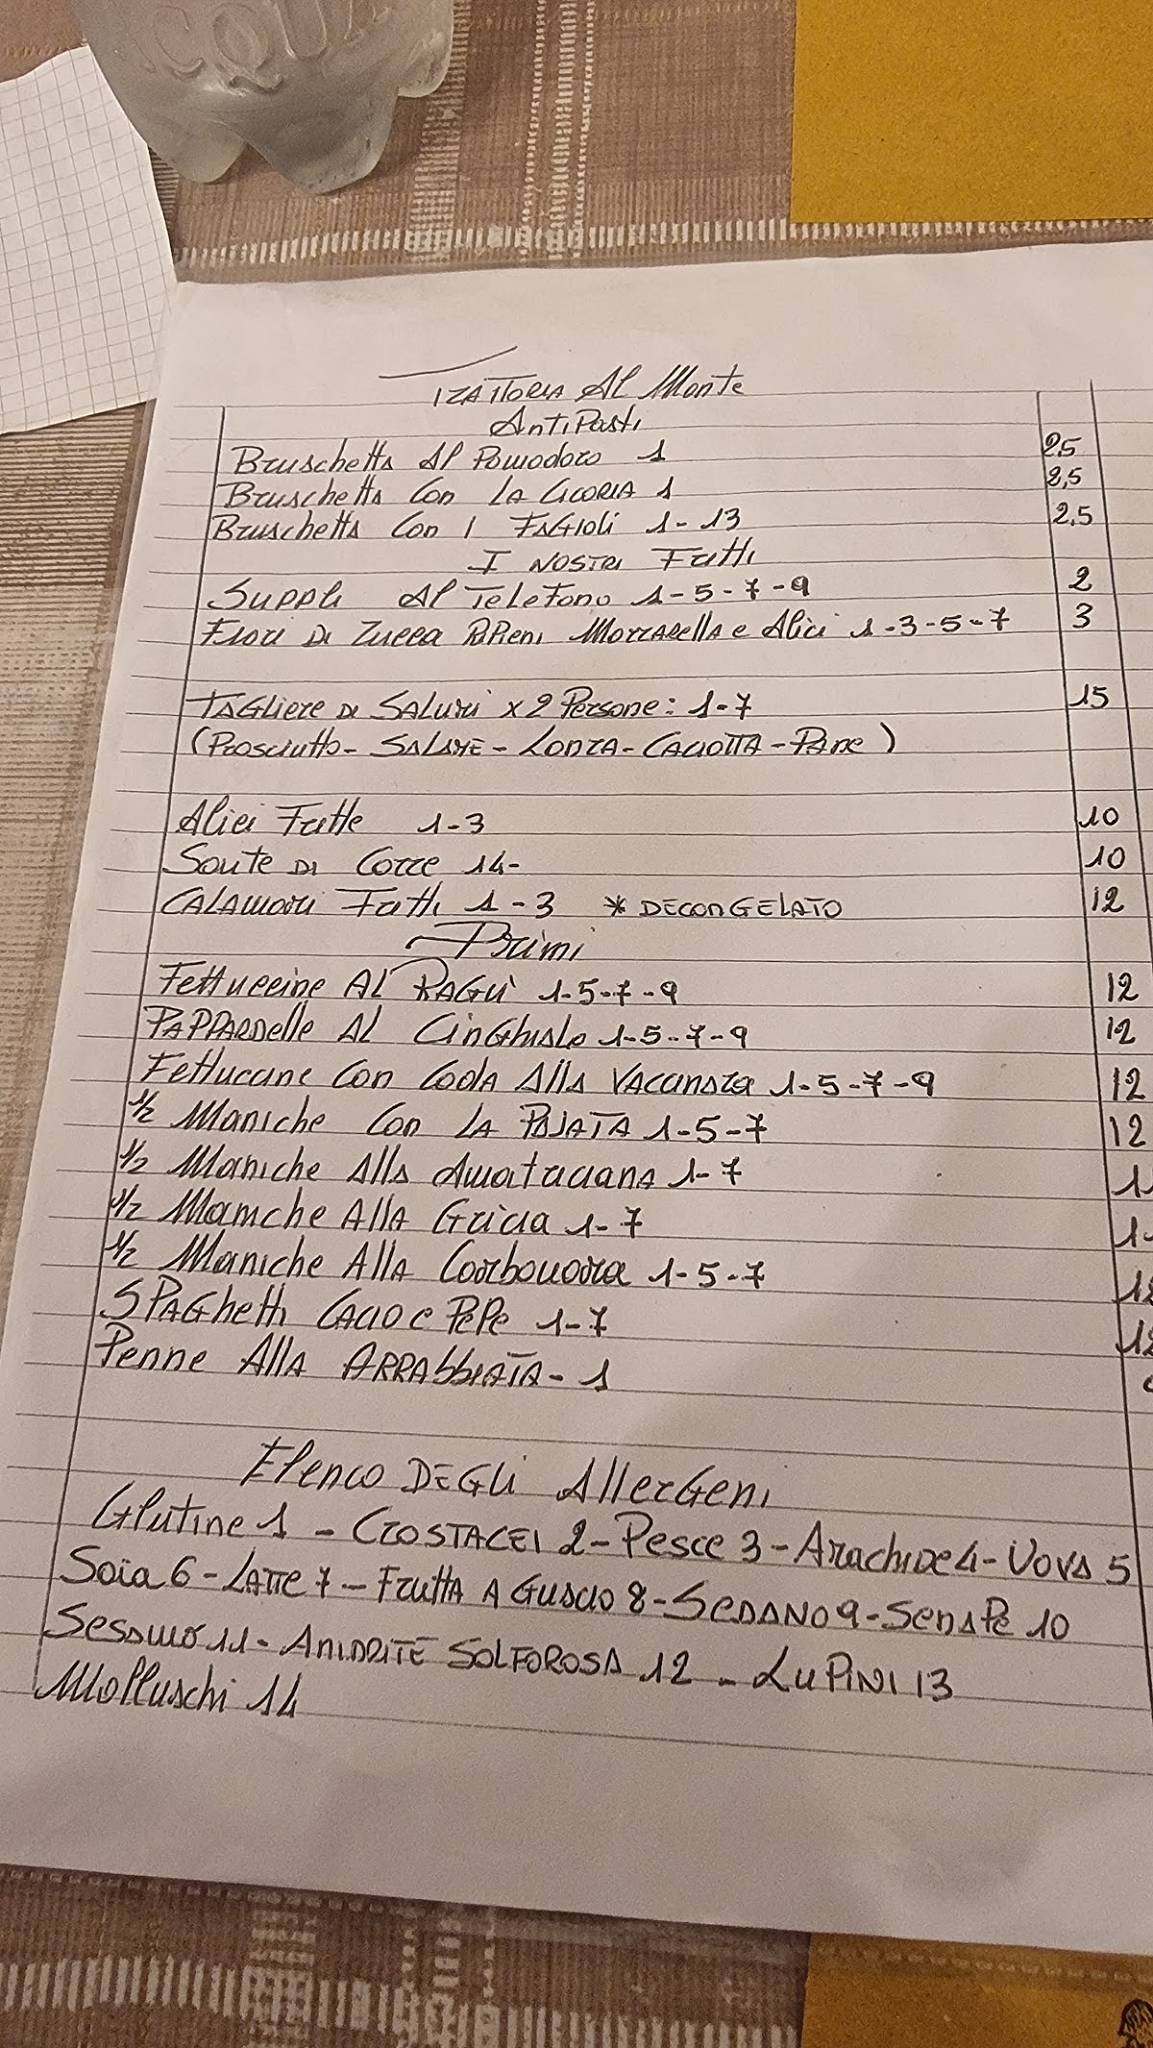 ACQUA
TRATTORIA Al Monte
AntiPasti
Bruschetta Al Pomodoro 1 25
Bruschetta Con LA CICORIA 1 2,5
Bruschetta Con I FAGIOLi 1-13 2,5
I NOSTRI Fritti
SUPPLI Al TeLeFono 1-5-7-9 2
FIORI Di Zucca RiPieni Mozzarella e Alici 1-3-5-7 3
TAGLiere Di SALUMI x 2 Persone: 1-7 15
(Prosciutto - SALAME - LONZA - CACIOTTA - PAne)
Alici Fritte 1-3 10
Soute Di Cozze 14- 10
CALAMARI Fritti 1-3 * DECONGELATO 12
Primi
Fettuccine AL RAGÙ 1-5-7-9 12
PAPPARdelle AL CinGhiale 1-5-7-9 12
Fettuccine Con CodA AllA VACCINARA 1-5-7-9 12
1/2 Maniche Con LA PAJATA 1-5-7 12
1/2 Maniche AllA Amatriciana 1-7
1/2 Maniche AllA Gricia 1-7
1/2 Maniche AllA Carbonara 1-5-7 12
SPAGhetti CACIO e PePe 1-7 12
Penne AllA ARRAbbIATA - 1
Elenco DEGLi AllerGeni
Glutine 1 - CROSTACEI 2 - Pesce 3 - Arachide 4 - UOVA 5
Soia 6 - LATTE 7 - FRUTTA A GUSCIO 8 - SEDANO 9 - SenAPe 10
Sesamo 11 - ANIDRITE SOLFOROSA 12 - LUPINI 13
Molluschi 14